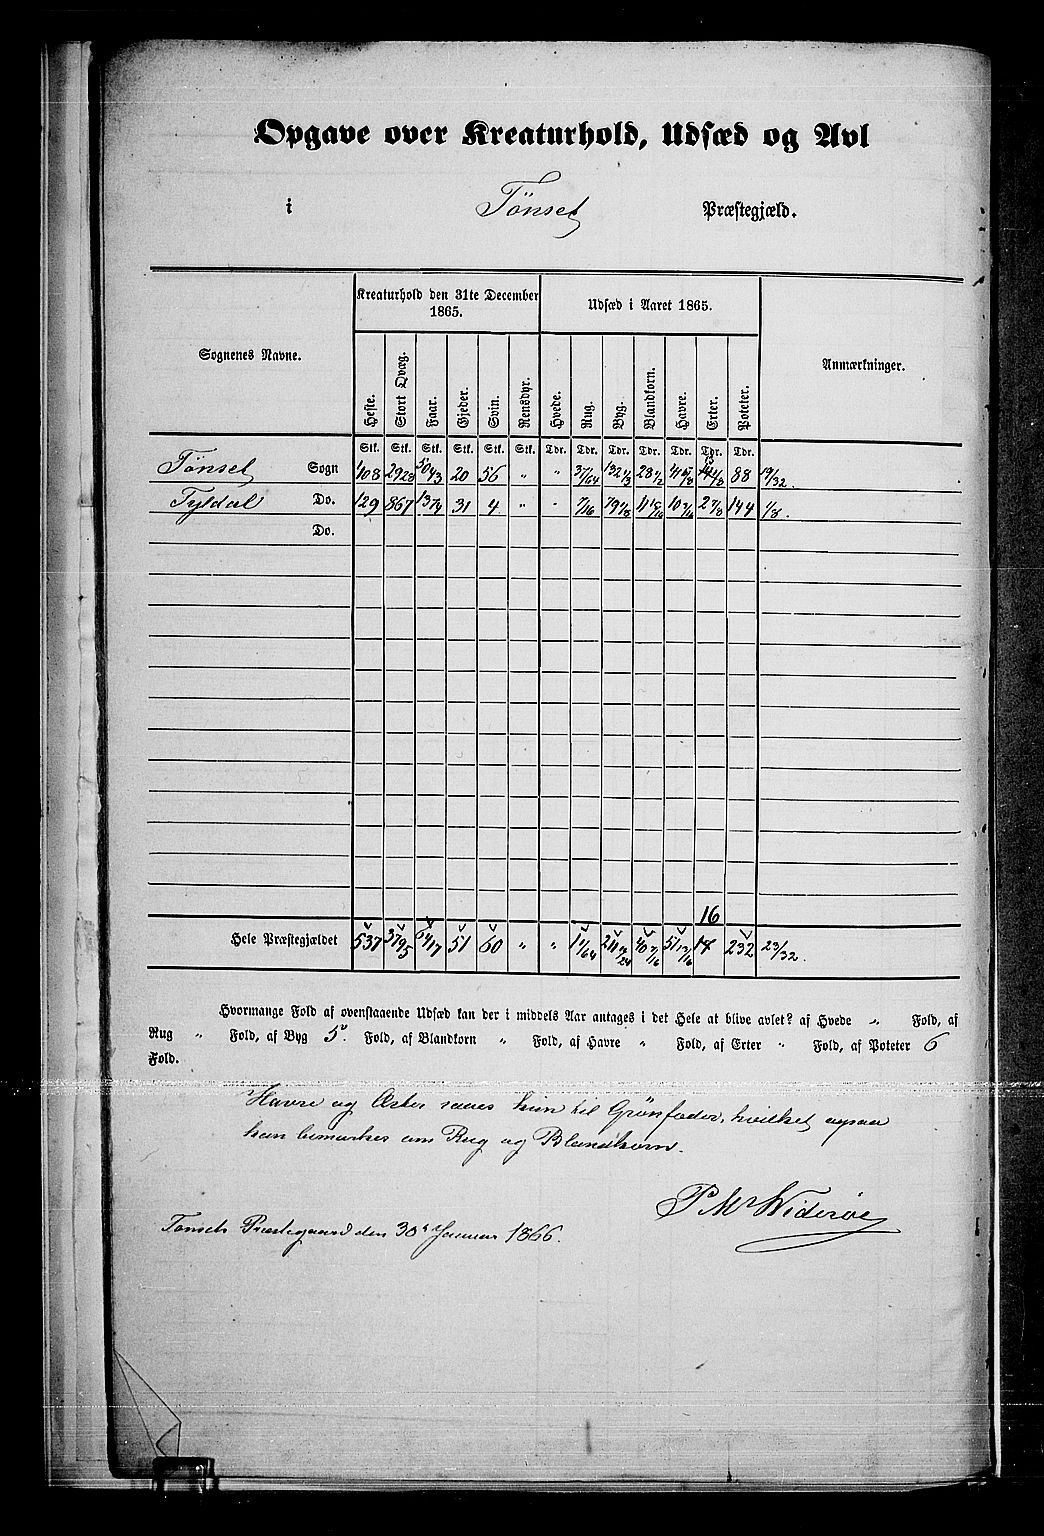 Opgave over Kreaturhold, Udsæd og Avl
i Tönset Præstegjæld.
Kreaturhold den 31te December 1865. Udsæd i Aaret 1865.
Sognenes Navne. Heste. Stort Qvæg. Faar. Gjeder. Svin. Rensdyr. Hvede. Rug. Byg. Blandkorn. Havre. Erter. Poteter. Anmærkninger.
Stk. Stk. Stk. Stk. Stk. Stk. Tdr. Tdr. Tdr. Tdr. Tdr. Tdr. Tdr.
Tönset Sogn 408 2928 5043 20 56 " " 37/64 132 1/3 28 1/2 88 19/32.
Tyldal Do. 129 867 1374 31 4 " " 7/16 79 1/8 11 15/16 10 3/16 2 7/8 144 1/8.
Do.
16
Hele Præstegjældet 537 3795 6417 51 60 " " 1 1/64 211 11/24 40 7/16 51 13/16 232 23/32.
Hvormange Fold af ovenstaaende Udsæd kan der i middels Aar antages i det Hele at blive avlet? af Hvede " Fold, af
Rug " Fold, af Byg 5. Fold, af Blandkorn " Fold, af Havre " Fold, af Erter " Fold, af Poteter 6
Fold.
Havre og Erter saaes kun til Grönfoder, hvilket ogsaa
kan bemærkes om Rug og Blandkorn.
P M Widerøe
Tönsets Præstegaard den 30 Januar 1866.